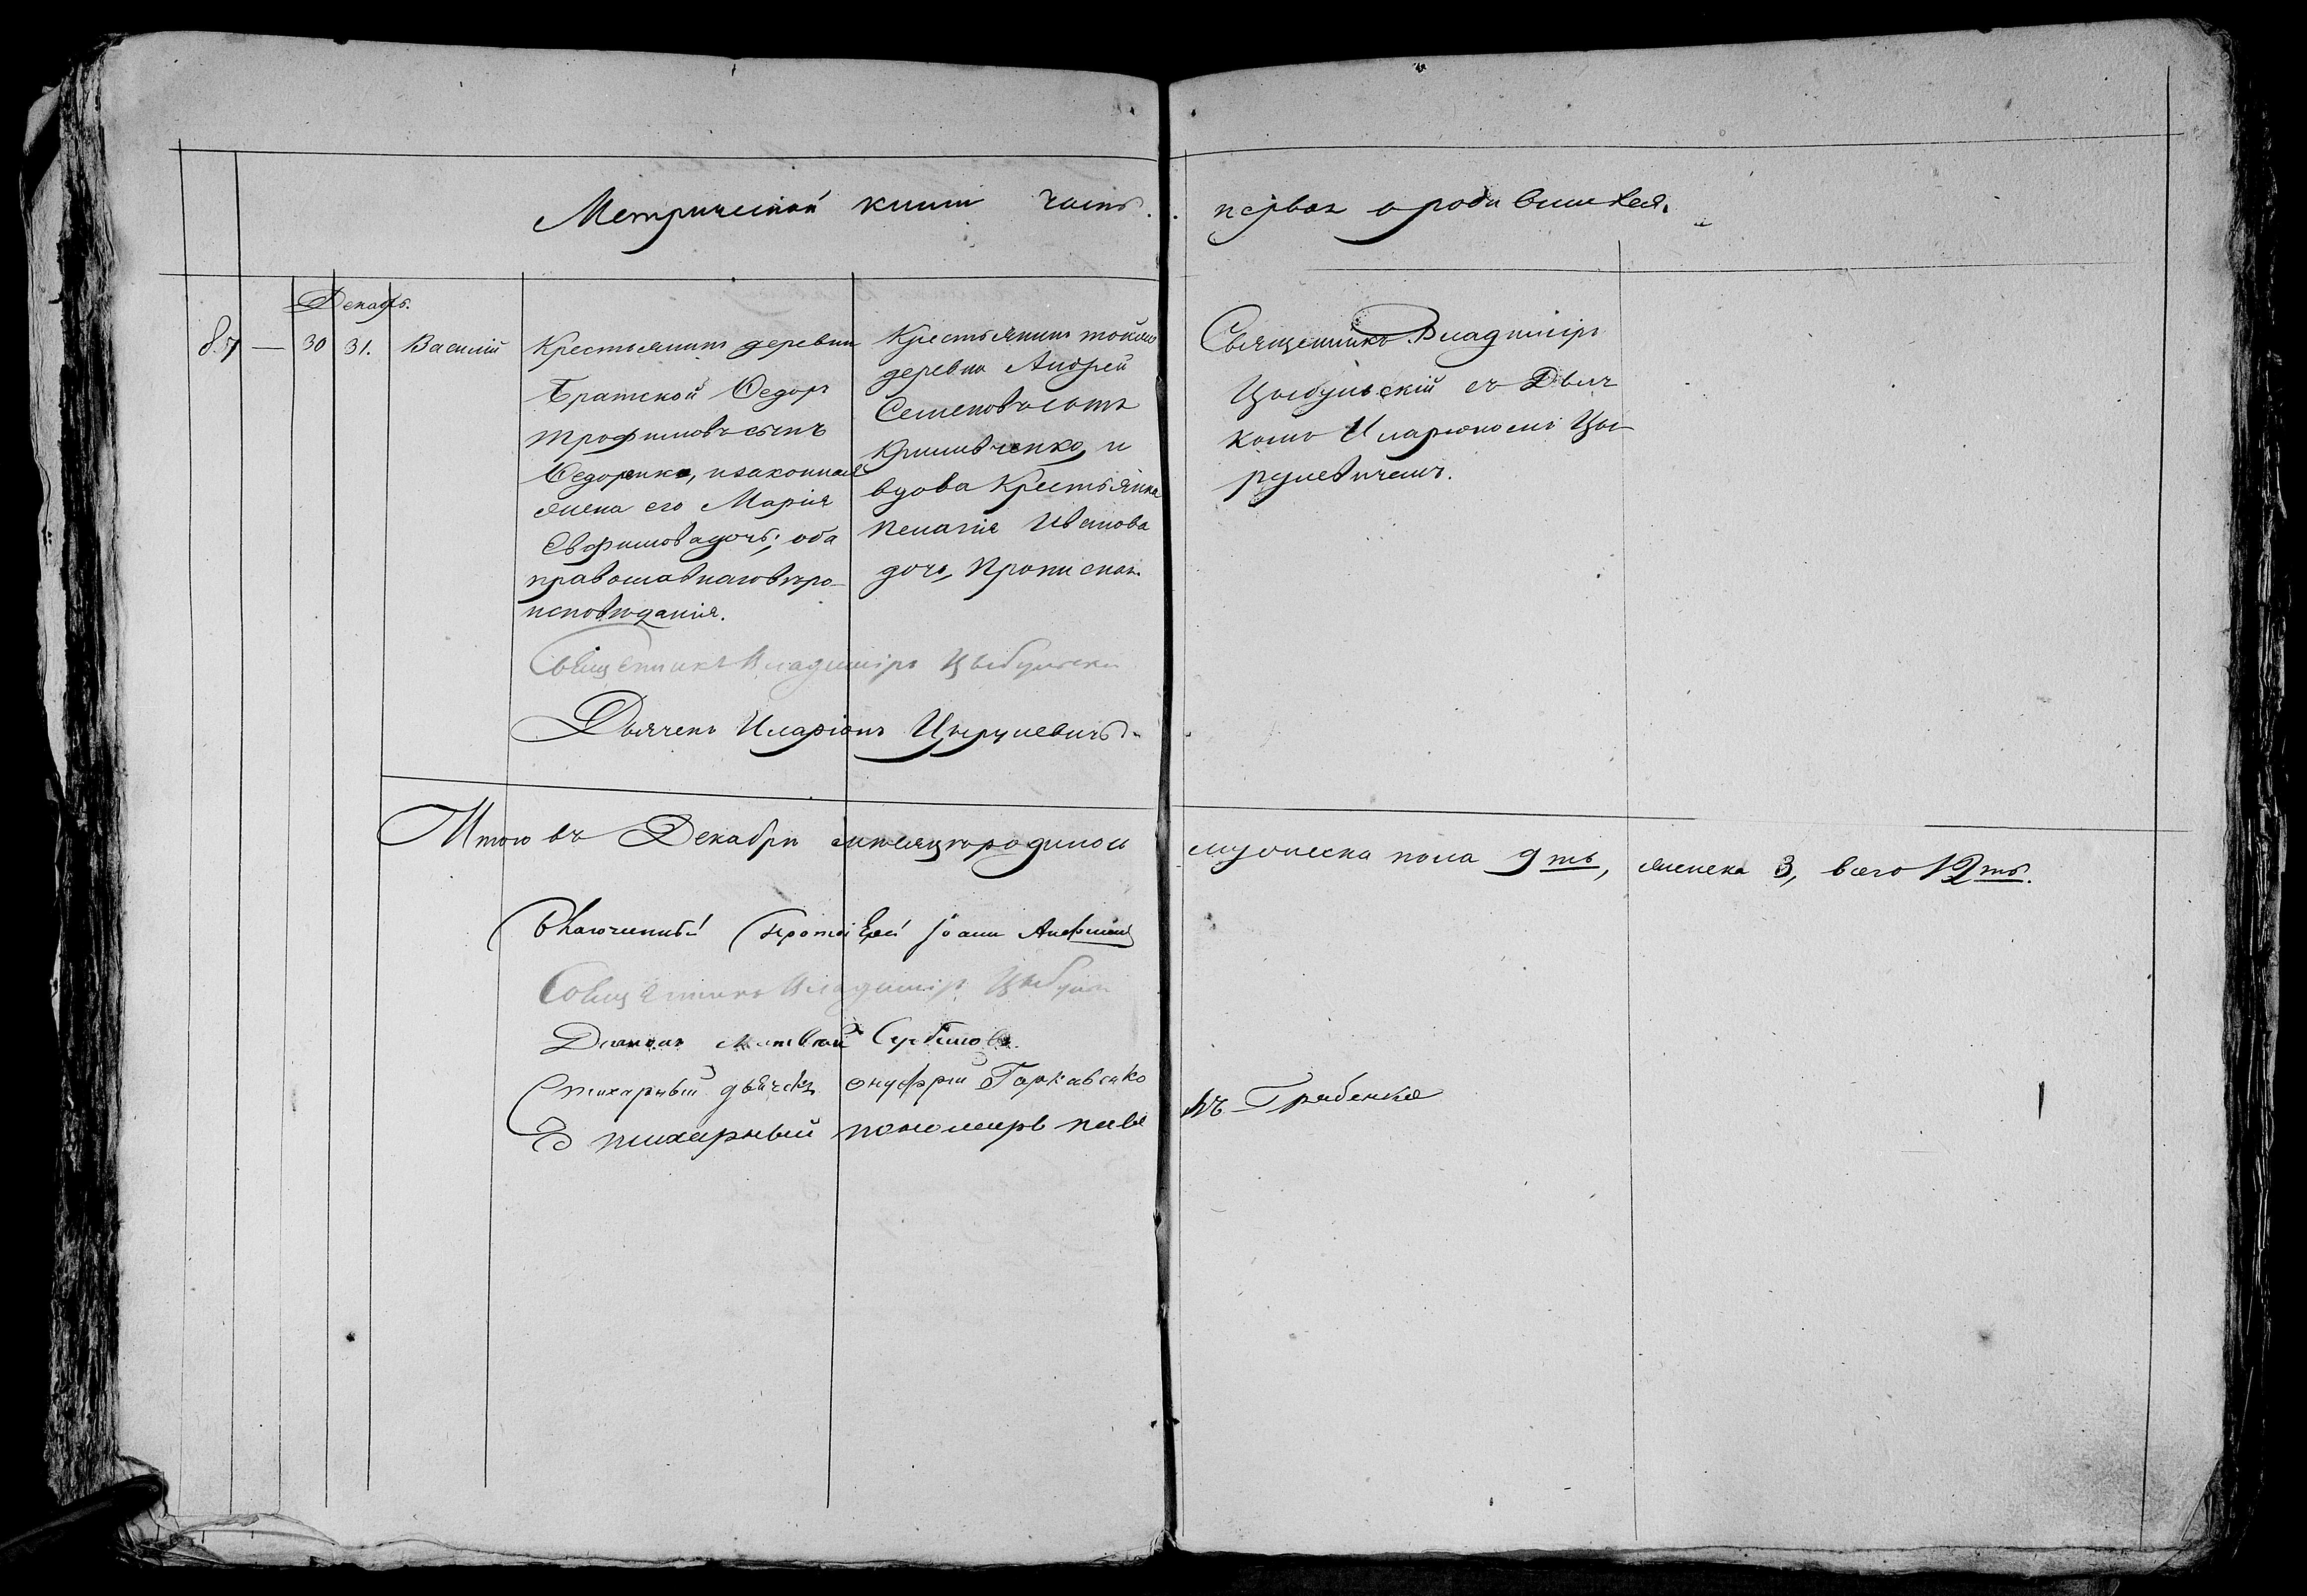 Метрической книги часть
первая о родившихся.
Декабр.
87 — 30 31. Василій
Крестьянинъ деревни
Братской Ѳедоръ
Трофимовъ сынъ
Ѳедоренко, и законная
жена его Марія
Евфимова дочь; оба
православнаго вѣро-
исповѣданія.
Крестьянинъ той же
деревни Андрей
Семеновъ сынъ
и
вдова Крестьянка
Пелагія Иванова
дочь,
Священникъ Владиміръ
Цыбульскій съ Дьяч
комъ Иларіономъ Цы-
рулевичемъ.
Священникъ Владиміръ Цыбульскій
Дьячекъ Иларіонъ Цырулевичъ
Итого въ Декабрѣ мѣсяцѣ родилось мужеска пола 9ть, женска 3, всего 12ть.
Протоіерей Іоаннъ
Священникъ Владиміръ Цыбуль
Стихарный дьячекъ Онуфрій
Стихарный пономарь Паве
лъ Грабенко